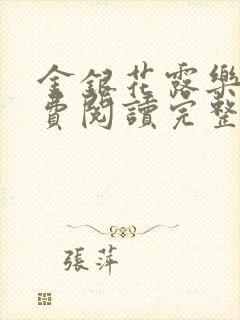 金銀花露樂
費閱讀完整
張萍